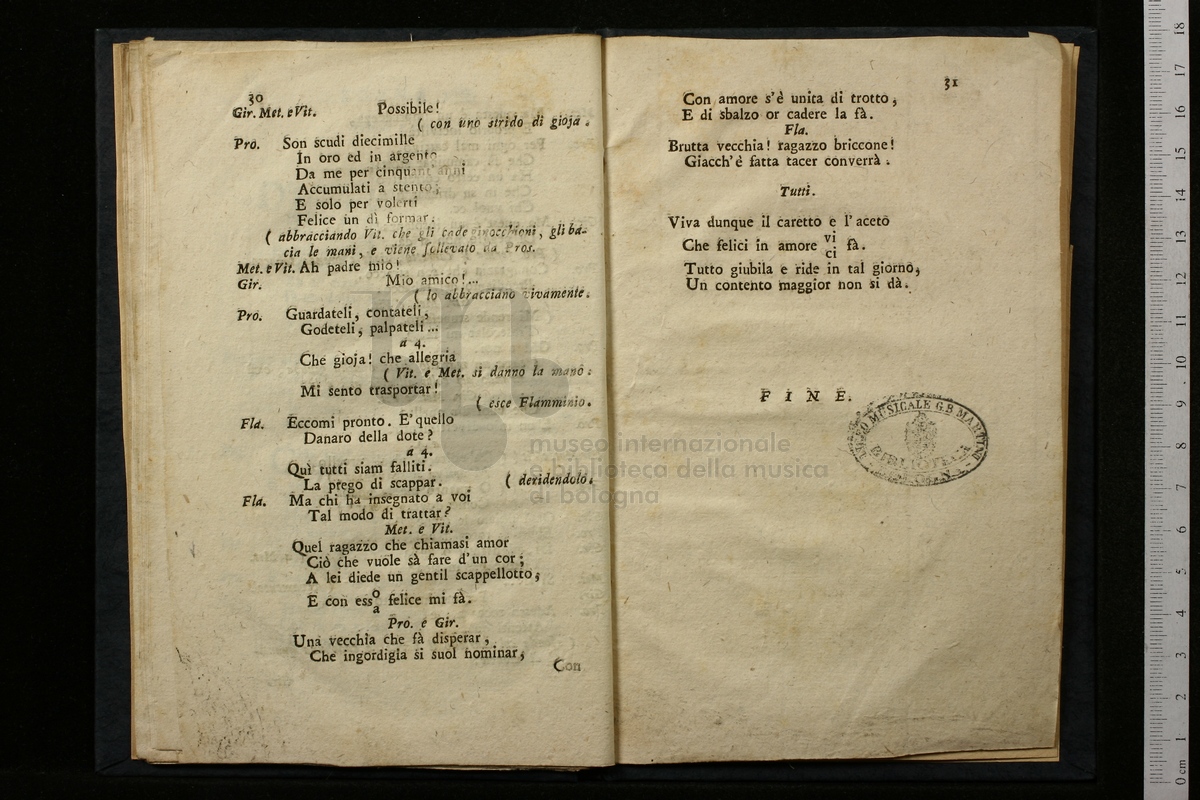 30
Gir. Met. e Vit. Possibile!
( con uno strido di gioja.
Pro. Son scudi diecimille
In oro ed in argento
Da me per cinquant'anni
Accumulati a stento;
E solo per volerti
Felice un dì formar.
( abbracciando Vit. che gli cade ginocchioni, gli ba-
cia le mani, e viene sollevato da Pros.
Met. e Vit. Ah padre mio!
Gir. Mio amico!...
( lo abbracciano vivamente.
Pro. Guardateli, contateli,
Godeteli, palpateli...
a 4.
Che gioja! che allegria
( Vit. e Met. si danno la mano.
Mi sento trasportar!
( esce Flamminio.
Fla. Eccomi pronto. E'quello
Danaro della dote?
a 4.
Quì tutti siam falliti.
La prego di scappar. ( deridendolo.
Fla. Ma chi ha insegnato a voi
Tal modo di trattar?
Met. e Vit.
Quel ragazzo che chiamasi amor
Ciò che vuole sà fare d'un cor;
A lei diede un gentil scappellotto,
E con ess o/a felice mi fà.
Pro. e Gir.
Una vecchia che fà disperar,
Che ingordigia si suol nominar,
Con
31
Con amore s'è unita di trotto,
E di sbalzo or cadere la fà.
Fla.
Brutta vecchia! ragazzo briccone!
Giacch'è fatta tacer converrà.
Tutti.
Viva dunque il caretto e l'aceto
Che felici in amore vi/ci fà.
Tutto giubila e ride in tal giorno,
Un contento maggior non si dà.
FINE.
MUSICALE G.B. MARTINI
BIBLIOTECA
museo internazionale
e biblioteca della musica
di bologna
0 cm 1 2 3 4 5 6 7 8 9 10 11 12 13 14 15 16 17 18